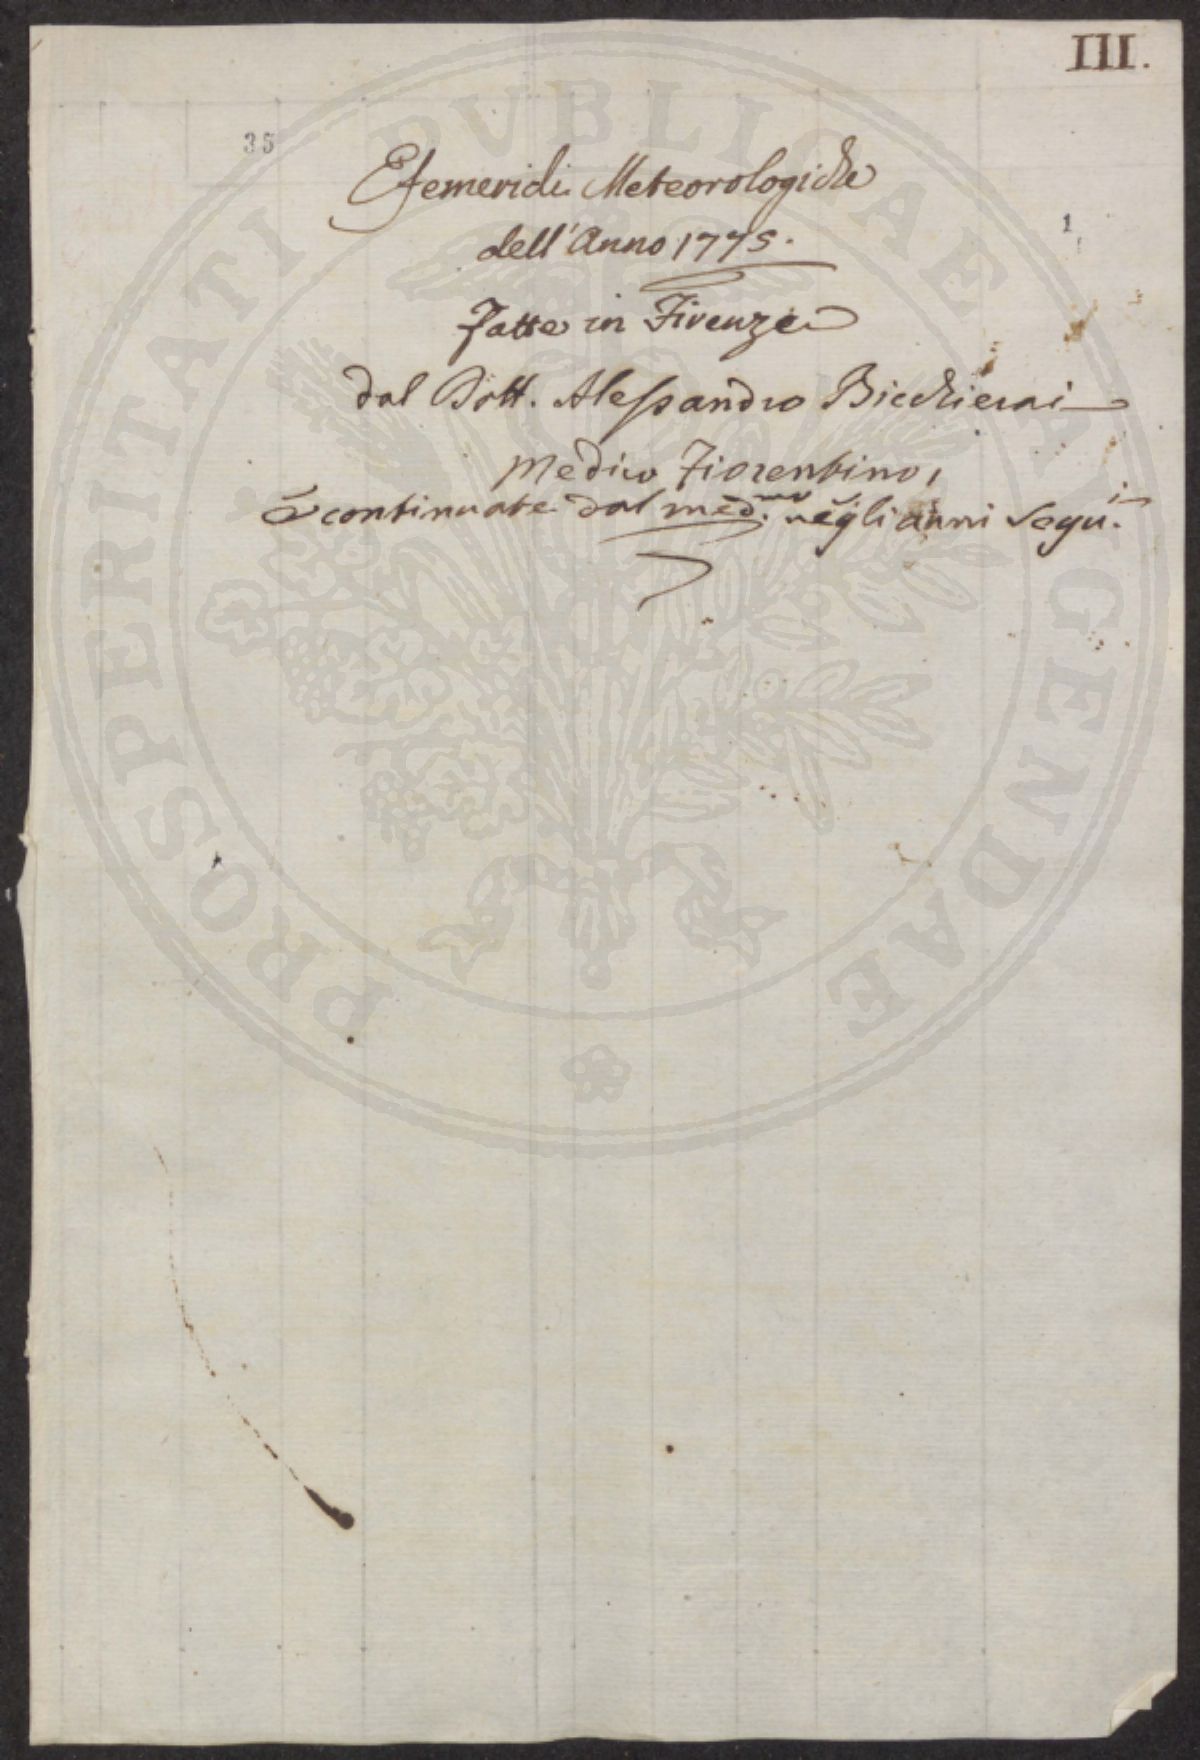 III.
35
Efemeridi Meteorologiche
dell'Anno 1775.
1
Fatte in Firenze
dal Dott. Alessandro Bicchierai
Medico Fiorentino,
e continuate dal med.mo negli anni segu.i
PROSPERITATI PVBLICAE AVGENDAE